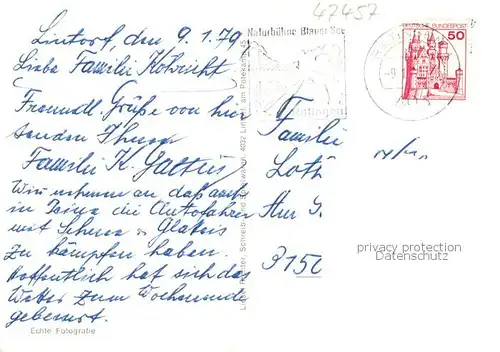 47457
Naturbühne Blauer See
Ratingen
DEUTSCHE BUNDESPOST
50
Lintorf, den 9.1.79
Liebe Familie
Freundl. Grüße von hier
senden Ihnen
Familie K.
Wir nehmen an daß auch
in Peine die Autofahrer
mit Schnee & Glatteis
zu kämpfen haben.
Hoffentlich hat sich das
Wetter zum Wochenende
gebessert.
Echte Fotografie
Familie
Loth
3150
privacy protection
Datenschutz